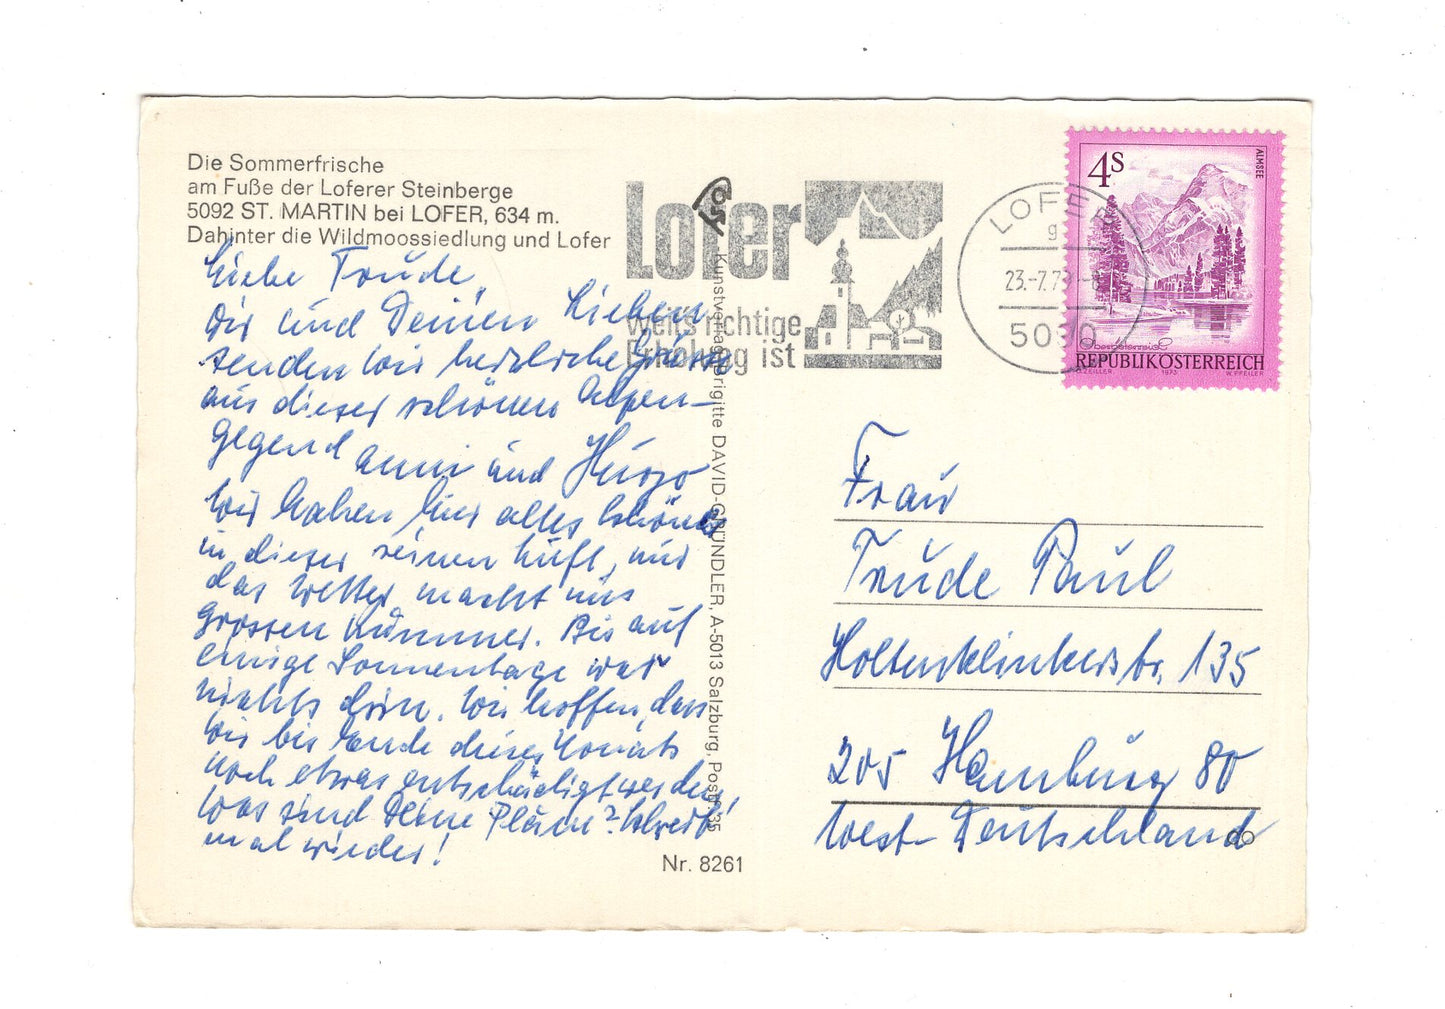 Die Sommerfrische
am Fuße der Loferer Steinberge
5092 ST. MARTIN bei LOFER, 634 m.
Dahinter die Wildmoossiedlung und Lofer
Liebe Trude,
Dir und Deinen Lieben
senden wir herzliche Grüsse
aus dieser schönen Alpen-
gegend Anni und Hugo
Wir haben hier alles schöne
in dieser reinen Luft, nur
das Wetter macht uns
grossen Kummer. Bis auf
einige Sonnentage war
nichts drin. Wir hoffen, dass
wir bis Ende dieses Monats
noch etwas entschädigt werden!
Was sind Deine Pläne? Schreib
mal wieder!
Lofer
weil's richtige
Erholung ist
Kunstverlag Brigitte DAVID-GRÜNDLER, A-5013 Salzburg, Postf. 35
Nr. 8261
LOFER
g
23.-7.79.-8
5090
4S
ALMSEE
Oberösterreich
REPUBLIK ÖSTERREICH
O. ZEILLER 1973 W. PFEILER
Frau
Trude Paul
Holtenklinkerstr. 135
205 Hamburg 80
West-Deutschland